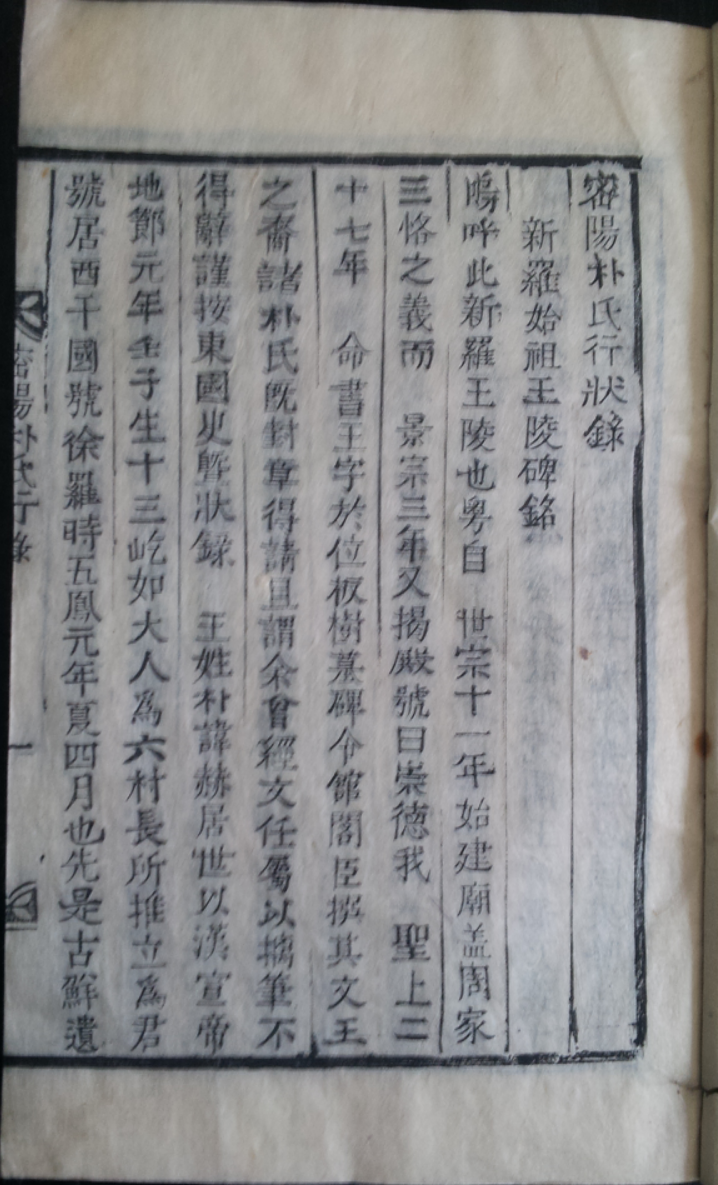 密陽朴氏行狀錄
新羅始祖王陵碑銘
嗚呼此新羅王陵也粤自 世宗十一年始建廟盖周家
三恪之義而 景宗三年又揭殿號曰崇德我 聖上二
十七年 命書王字於位板樹墓碑令館閣臣撰其文王
之裔諸朴氏旣對章得請且謂余曾經文任屬以拙筆不
得辭謹按東國史曁狀錄 王姓朴諱赫居世以漢宣帝
地節元年壬子生十三屹如大人為六村長所推立為君
號居西干國號徐羅時五鳳元年夏四月也先是古鮮遺
密陽朴氏行錄 一